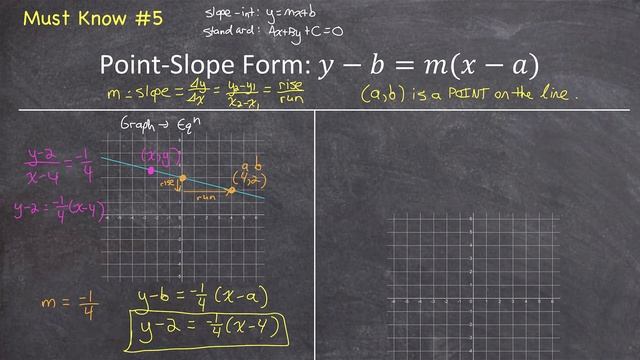 Must Know #5
slope-int: y=mx+b
standard: Ax+By+C=0
Point-Slope Form: y − b = m(x − a)
m=slope=Δy/Δx=y₂-y₁/x₂-x₁=rise/run
(a,b) is a POINT on the line.
Graph → Eqⁿ
y-2/x-4=-1/4
(x,y)
a b
(4,2)
rise
run
y-2=-1/4(x-4)
m=-1/4
y-b=-1/4(x-a)
y-2=-1/4(x-4)